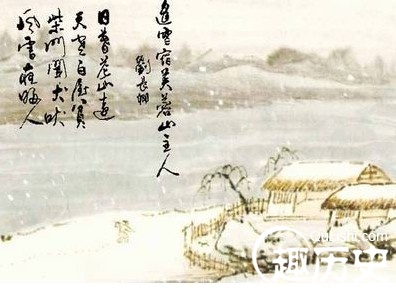 逢雪宿芙蓉山主人
劉長卿
日暮苍山遠
天寒白屋貧
柴門聞犬吠
風雪夜歸人
趣历史